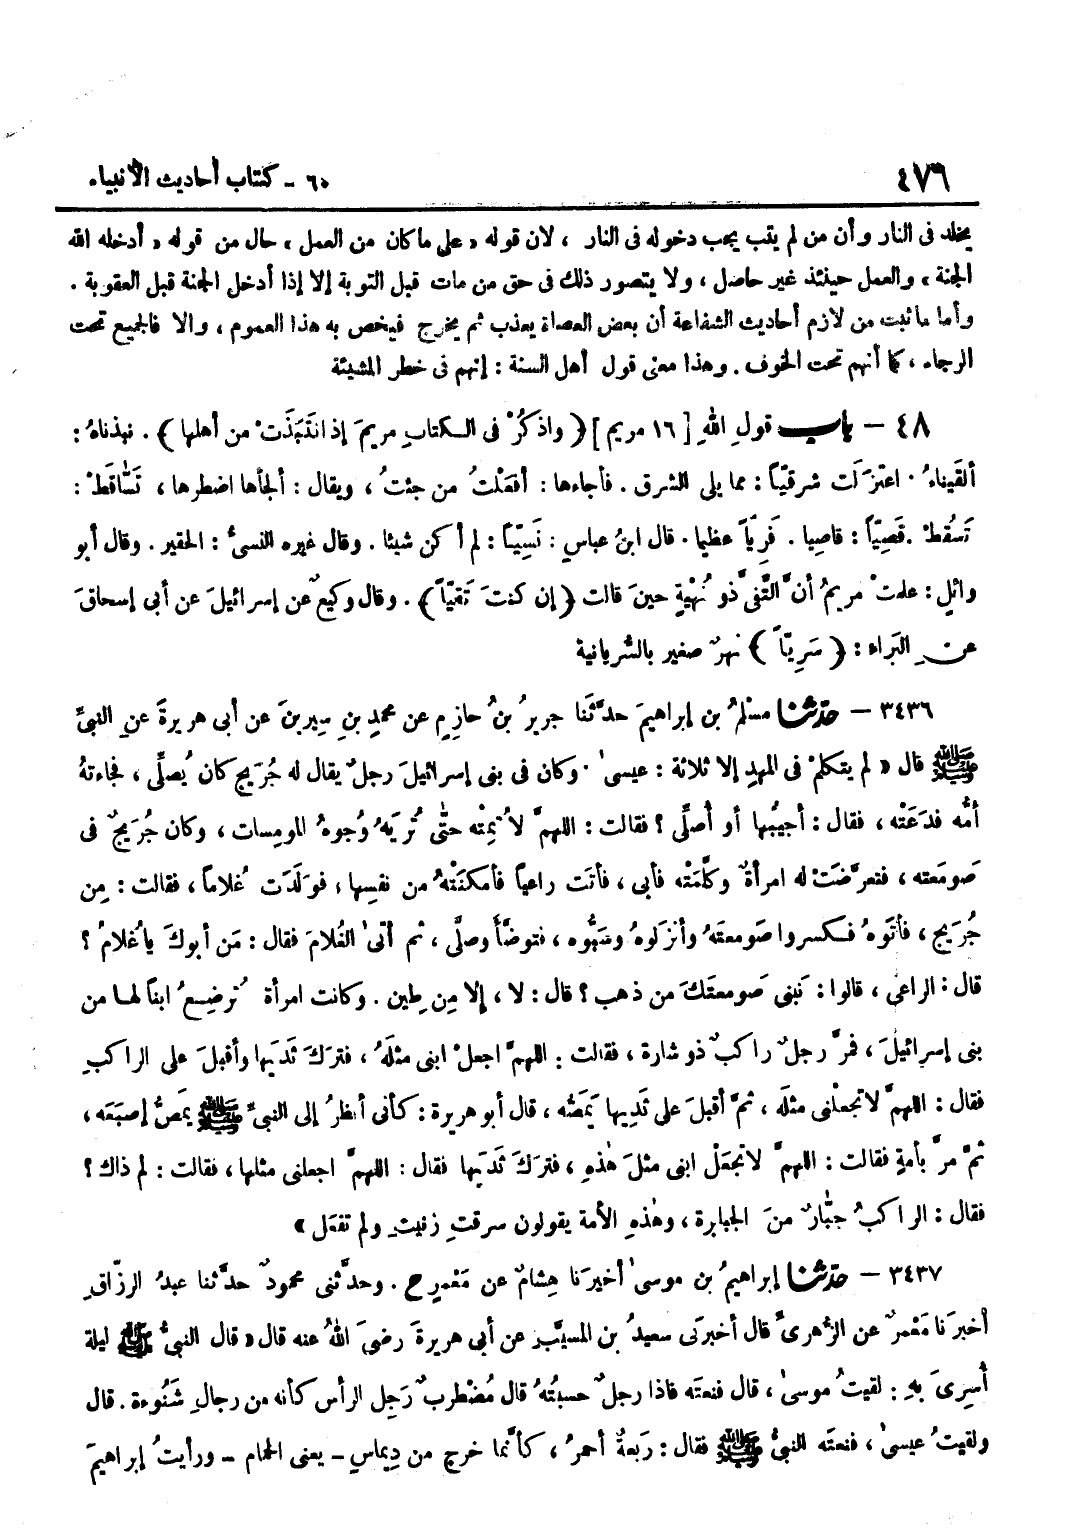 ٤٧٦
٦٠ - كتاب أحاديث الأنبياء
يخلد فى النار وأن من لم يتب يجب دخوله فى النار ، لان قوله « على ما كان من العمل ، حال من قوله « أدخله الله
الجنة ، والعمل حينئذ غير حاصل ، ولا يتصور ذلك فى حق من مات قبل التوبة إلا إذا أدخل الجنة قبل العقوبة .
وأما ما ثبت من لازم أحاديث الشفاعة أن بعض العصاة يعذب ثم يخرج فيخص به هذا العموم ، والا فالجميع تحت
الرجاء ، كما أنهم تحت الخوف . وهذا معنى قول أهل السنة : إنهم فى خطر المشيئة
٤٨ – باب قولِ اللهِ [ ١٦ مريم ] ﴿ واذكُرْ فى الكتابِ مريمَ إذ انتَبَذَتْ من أهلها ﴾ . نبذناهُ :
ألقَيناهُ . اعتزَلَت شرقيّاً : مما يلى الشرق . فأجاءها : أفعَلْتُ من جئتُ ، ويقال : ألجأها اضطرها ، تَسّاقَطْ :
تَسقُطْ . قَصِيّاً : قاصِيا . فَرِيّاً عظيما . قال ابنُ عباس : نَسِيّاً : لم أكن شيئا . وقال غيره النسىُ : الحقير . وقال أبو
وائلٍ : علمتْ مريمُ أنَّ التَّقىَّ ذو نُهْيَةٍ حينَ قالت ﴿ إن كنتَ تَقيّاً ﴾ . وقال وكيعٌ عن إسرائيلَ عن أبى إسحاقَ
عنِ البَراء : ﴿ سَرِيّاً ﴾ نهرٌ صغير بالسُّريانية
٣٤٣٦ – حدّثنا مسلمُ بن إبراهيمَ حدَّثَنا جريرُ بنُ حازمٍ عن محمدِ بنِ سِيرينَ عن أبى هريرةَ عنِ النبىِّ
ﷺ قال « لم يتكلمْ فى المهدِ إلا ثلاثة : عيسىٰ . وكان فى بنى إسرائيلَ رجلٌ يقال له جُرَيج كان يُصلِّى ، فجاءتهُ
أمُّه فدعَتْه ، فقال : أجيبُها أو أُصلِّى ؟ فقالت : اللهمَّ لا تُمِتْه حتّى تُرِيَهُ وُجوهَ المومِسات ، وكان جُرَيجٌ فى
صَومَعته ، فتعرَّضَتْ له امرأةٌ وكلَّمَتْه فأبى ، فأتَت راعياً فأمكنَتْهُ من نفسِها ، فوَلَدَت غُلاماً ، فقالت : مِن
جُرَيج ، فأتَوهُ فكسروا صَومعتَهُ وأنزَلوهُ وسَبُّوه ، فتوضَّأَ وصلَّى ، ثم أتىٰ الغُلامَ فقال : مَن أبوكَ يا غُلامُ ؟
قال : الراعى ، قالوا : نَبنى صَومعتَكَ من ذهب ؟ قال : لا ، إلا مِن طِين . وكانت امرأة تُرضِعُ ابناً لها من
بنى إسرائيلَ ، فمرَّ رجلٌ راكبٌ ذو شارة ، فقالت : اللهمَّ اجعلْ ابنى مثلَهُ ، فترَكَ ثَديَها وأقبلَ على الراكبِ
فقال : اللهمَّ لا تجعلْنى مثلَه ، ثمَّ أقبلَ على ثَديِها يَمَصُّه ، قال أبو هريرة : كأنى أنظرُ إلى النبىِّ ﷺ يمَصُّ إصبَعَه ،
ثمَّ مرَّ بأمةٍ فقالت : اللهمَّ لا تجعَلْ ابنى مثلَ هٰذهِ ، فترَكَ ثَديَها فقال : اللهمَّ اجعلنى مثلها ، فقالت : لم ذاك ؟
فقال : الراكبُ جبّارٌ منَ الجبابرة ، وهٰذهِ الأمة يقولون سرقتِ زنيتِ ولم تفعَل »
٣٤٣٧ – حدّثنا إبراهيمُ بن موسىٰ أخبرَنا هِشامٌ عن مَعْمرٍ ح . وحدَّثنى محمودٌ حدَّثنا عبدُ الرزّاقِ
أخبرَنا مَعْمرٌ عنِ الزُّهرىِّ قال أخبرَنى سعيدُ بن المسيَّبِ عن أبى هريرةَ رضىَ اللهُ عنه قال « قال النبىُّ ﷺ ليلة
أُسرِىَ بهِ : لقيتُ موسىٰ ، قال فنعتَه فاذا رجلٌ حسبتُهُ قال مُضْطربٌ رَجِل الرأس كأنه من رجالِ شَنُوءة . قال
ولقيتُ عيسىٰ ، فنعتَه النبىُّ ﷺ فقال : رَبعةٌ أحمرُ ، كأنَّما خرج من دِيماسٍ – يعنى الحمام – ورأيتُ إبراهيمَ